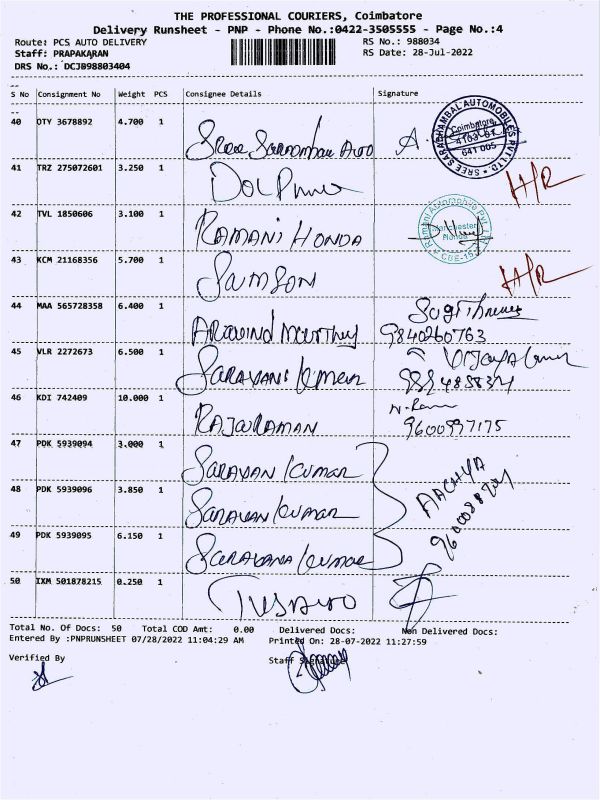 THE PROFESSIONAL COURIERS, Coimbatore
Delivery Runsheet - PNP - Phone No.:0422-3505555 - Page No.:4
Route: PCS AUTO DELIVERY RS No.: 988034
Staff: PRAPAKARAN RS Date: 28-Jul-2022
DRS No.: DCJ898803404
S No Consignment No Weight PCS Consignee Details Signature
40 OTY 3678892 4.700 1 Sree Auto A.
SREE SARADHAMBAL AUTOMOBILES PVT LTD. Coimbatore 641 005
41 TRZ 275072601 3.250 1 DOLPHIN H/R
42 TVL 1850606 3.100 1 RAMANI HONDA
Ramani Automobile Pvt. Honda CBE-15
43 KCM 21168356 5.700 1 SAMSON H/R
44 MAA 565728358 6.400 1 ARAVIND MOURTHY
9840260763
45 VLR 2272673 6.500 1 SARAVANA KUMAR
46 KDI 742409 10.000 1 RAJARAMAN
9600997175
47 PDK 5939094 3.000 1 SARAVAN KUMAR
48 PDK 5939096 3.850 1 SARAVAN KUMAR
49 PDK 5939095 6.150 1 SARAVANA KUMAR
50 IXM 501878215 0.250 1
Total No. Of Docs: 50 Total COD Amt: 0.00 Delivered Docs: Non Delivered Docs:
Entered By :PNPRUNSHEET 07/28/2022 11:04:29 AM Printed On: 28-07-2022 11:27:59
Verified By Staff Signature